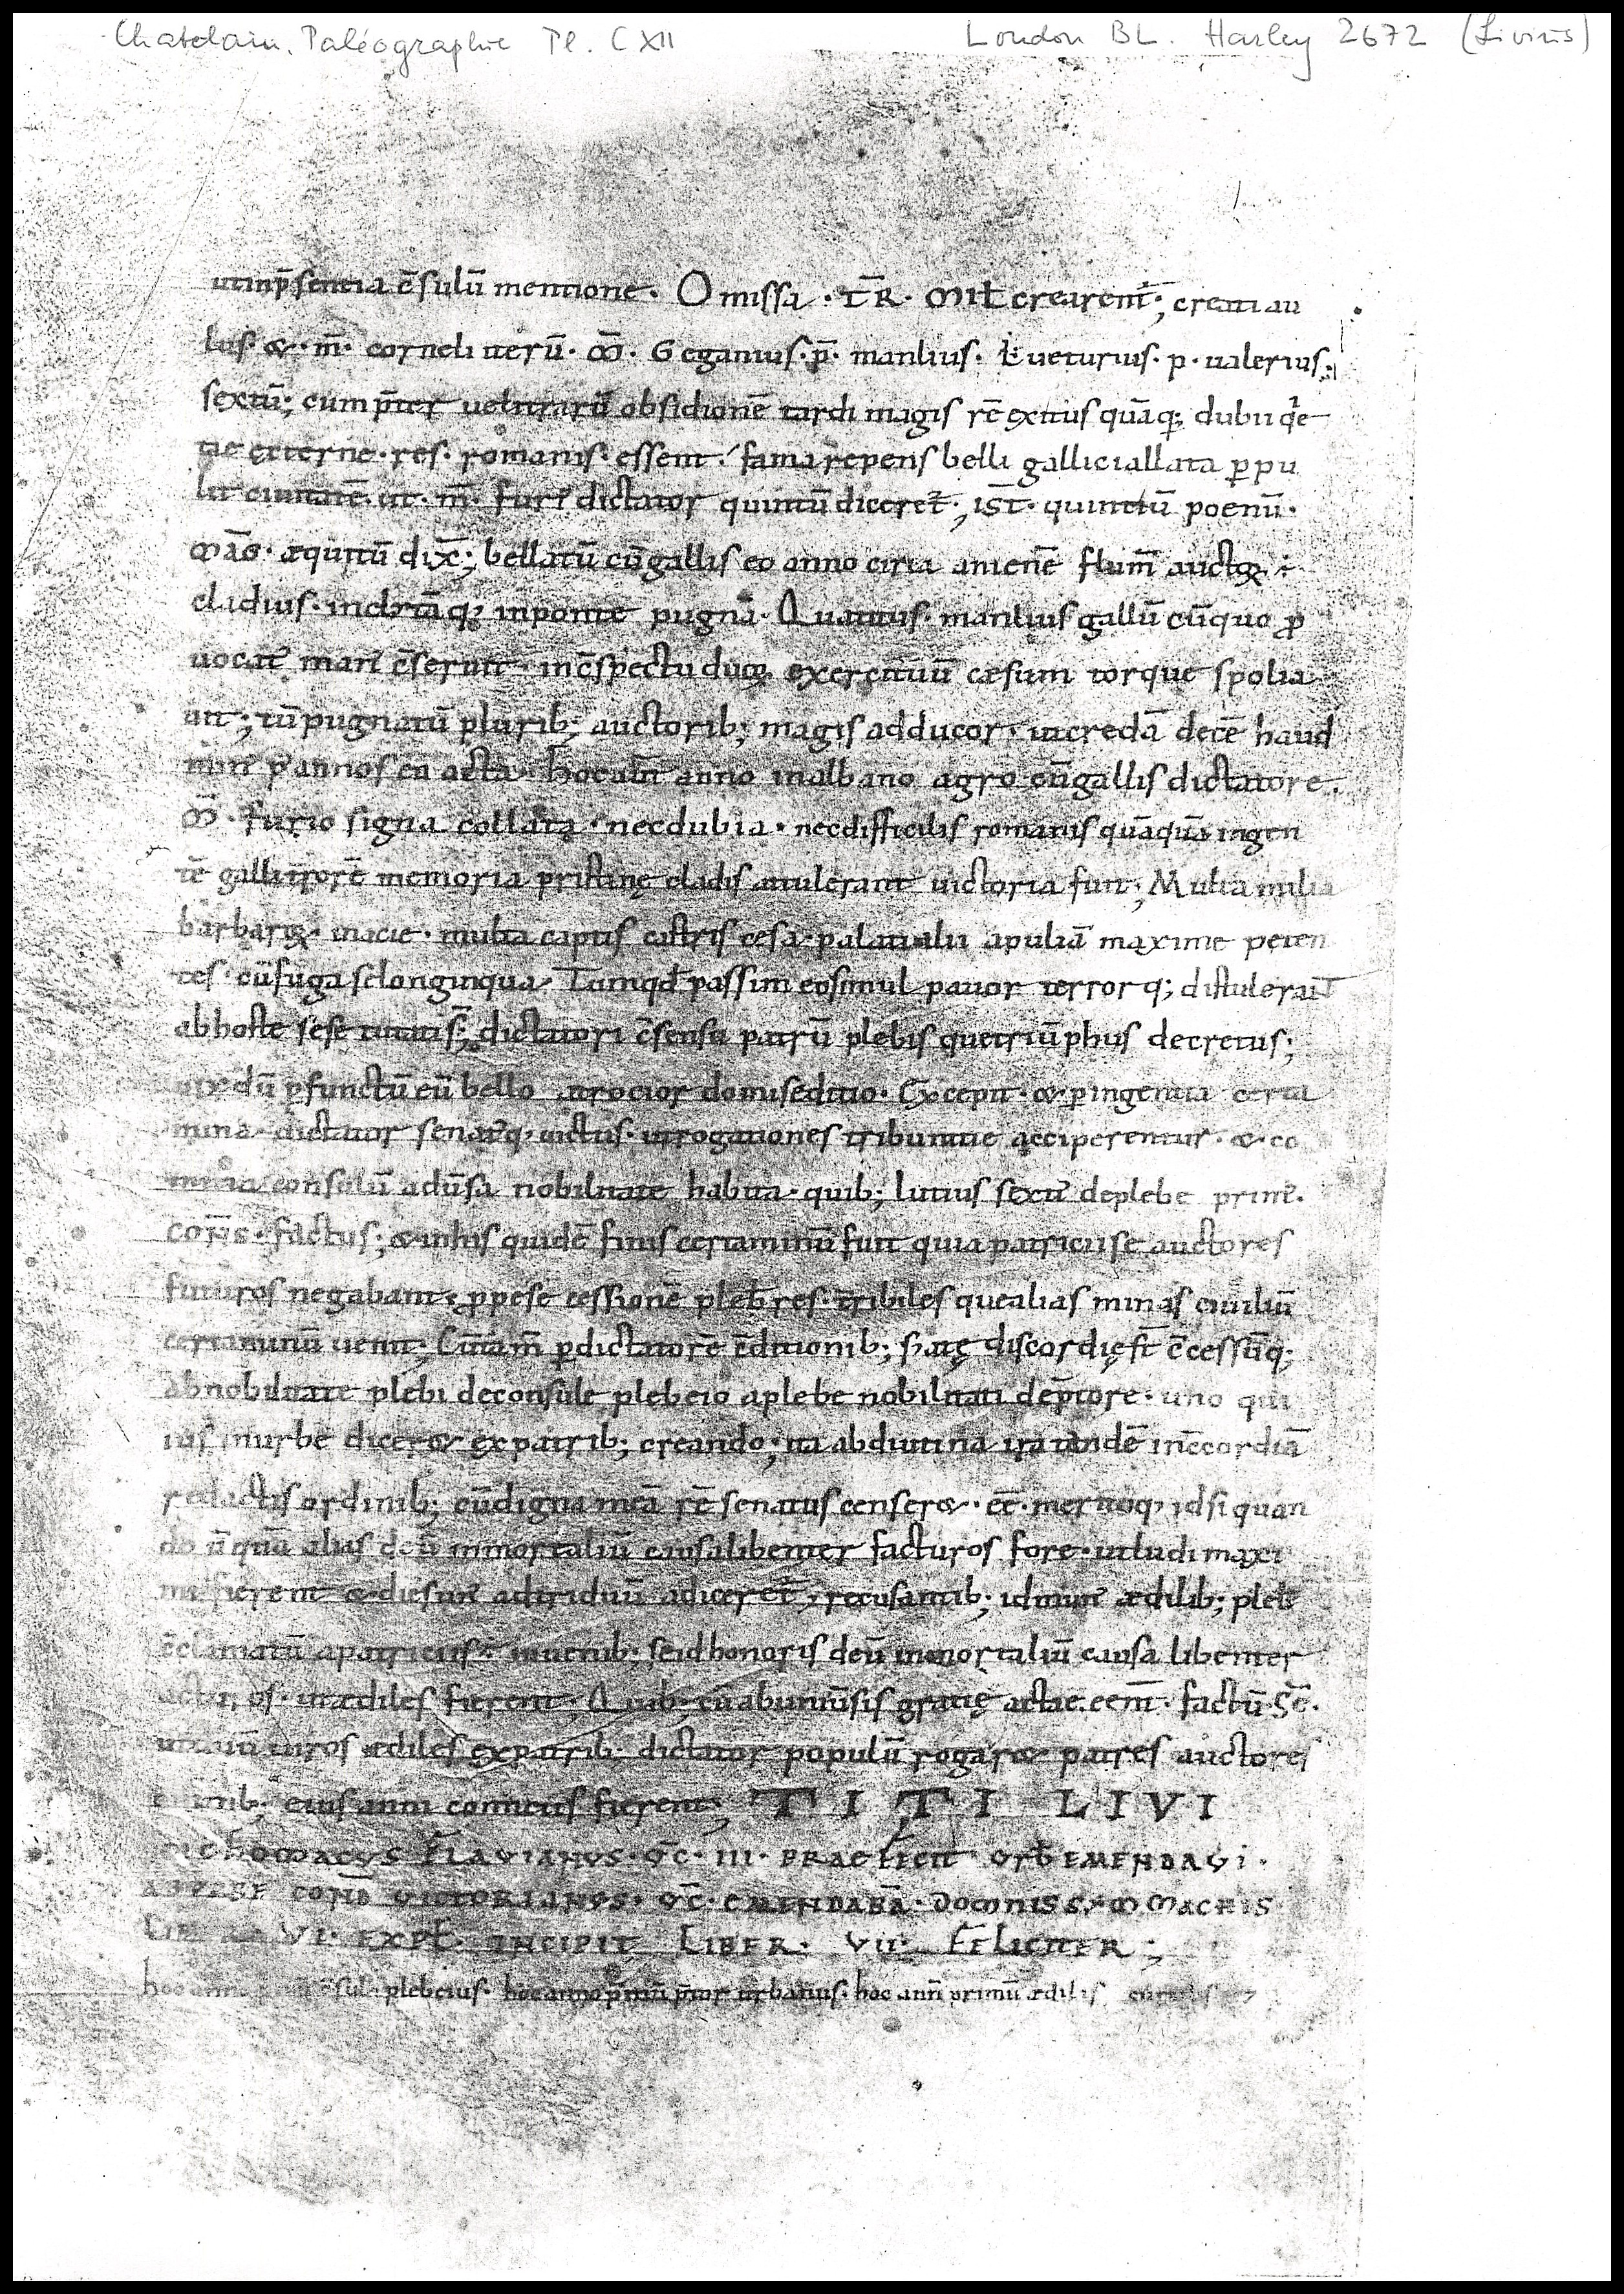 Chatelain, Paléographie Pl. CXII
London BL. Harley 2672 (Livius)
utinp̄sentia c̄sulū mentione. Omissa · TR̄ · MIL crearent᷒; creati au
lus· &· m̄· corneli iterū· M̄· Geganius· p̄· manlius· L ueturius· p· ualerius·
sextū; cum p̄ter uelitrarū obsidionē tardi magis rē exitus quāq; dubii q̇e
tae externe· res· romanis· essent· fama repens belli gallici allata ꝑpu
lit ciuitatē· ut· m̄· furi᷒ dictator quintū diceret᷒; IS T̄· quinctū poenū·
MAḠ· æquitū dix̄; bellatū cū gallis eo anno circa anienē flum̄ auctoꝝ ÷
cladius· inclitāq; inponte pugnā· Quatitus· manlius gallū cū quo ꝓ
uocat᷒ man᷒ c̄seruit· in c̄spectu duoꝝ exercituū cæsum torque spolia
uit; tū pugnatū plurib; auctorib; magis adducor· ut credā decē haud
min᷒ p᷒ annos ea acta· hoc aut̄ anno inalbano agro cū gallis dictatore·
M̄· furio signa collata· nec dubia· nec difficilis romanis quāquā ingen
tē galli t̄rorē memoria pristinę cladis attulerant uictoria fuit; Multa milia
barbaroꝝ· inacie· multa captis castris cesa· palati alii apuliā maxime peten
tes· cū fuga se longinqua· Tum qd̄ passim eos simul pauor terrorq; distulerat
ab hoste sese tutatis̄; dictatori c̄sensu patrū plebis que triūphus decretus;
uixdū ꝑfunctū eū bello atrocior domi seditio· Excepit· & ꝑ ingentia certa
mina· dictator senat᷒q; uictus· ut rogationes tribuntie acciperentur· & co
mitia consulū aduersa nobilitate habita· quib; lutius sext᷒ deplebe prim᷒·
CON̄S· factus; & inhis quidē finis certaminū fuit quia patricii se auctores
futuros negabant· ꝓpe secessionē pleb res· tr̄ibiles que alias minas ciuiliū
certaminū uenit; Cū tam̄ ꝑ dictatorē c̄ditionib; sedatę discordię s̄t c̄cessūq;
ab nobilitate plebi de consule plebeio a plebe nobilitati de p̄tore· uno qui
ius inurbe diceret ex patrib; creando; ita ab diutina ira tandē in c̄cordiā
redactis ordinib; cū digna meā rē senatus censeret· eē· meritoq; id si quan
do ū quā alias deū inmortaliū causa libenter facturos fore· ut ludi maxi
mi fierent & dies un᷒ ad triduū adiceret᷒; recusantib; id mun᷒ ædilib; pleb
c̄clamatū a patriciis ÷ iuuenib; se id honoris deū inmortaliū causa libenter
acturos· ut ædiles fierent· Quib· cū ab uniūsis gratię actae eent· factū· S̄C̄·
ut duū uiros ædiles ex patrib; dictator populū rogaret patres auctores
omnib; eius anni comitiis fierent; TITI LIVI
NICHOMACUS FLAVIANUS· V̄C· III· PRAEFECIT URB̄ EMENDAVI·
COND VICTORIANUS· V̄C· EMENDABĀ· DOMNIS SYMMACHIS·
LIBER VI· EXPL̄· INCIPIT LIBER· VII· FELICITER;
hoc anno c̄sul plebeius· hoc anno p̄mū p̄tor urbanus· hoc ann̄ primū ædilis